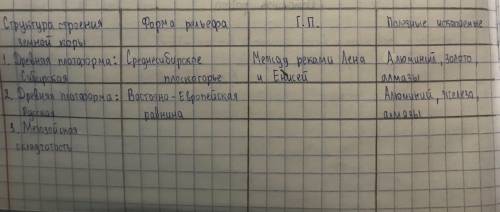 Структура строения Форма рельефа Г.П. Полезные ископаемые
земной коры
1. Древная платформа: Среднесибирское Между реками Лена Алюминий, золото,
Сибирская плоскогорье и Енисей алмазы
2. Древная платформа: Восточно-Европейская Алюминий, железо,
Русская равнина алмазы
3. Мезозойская
складчатость